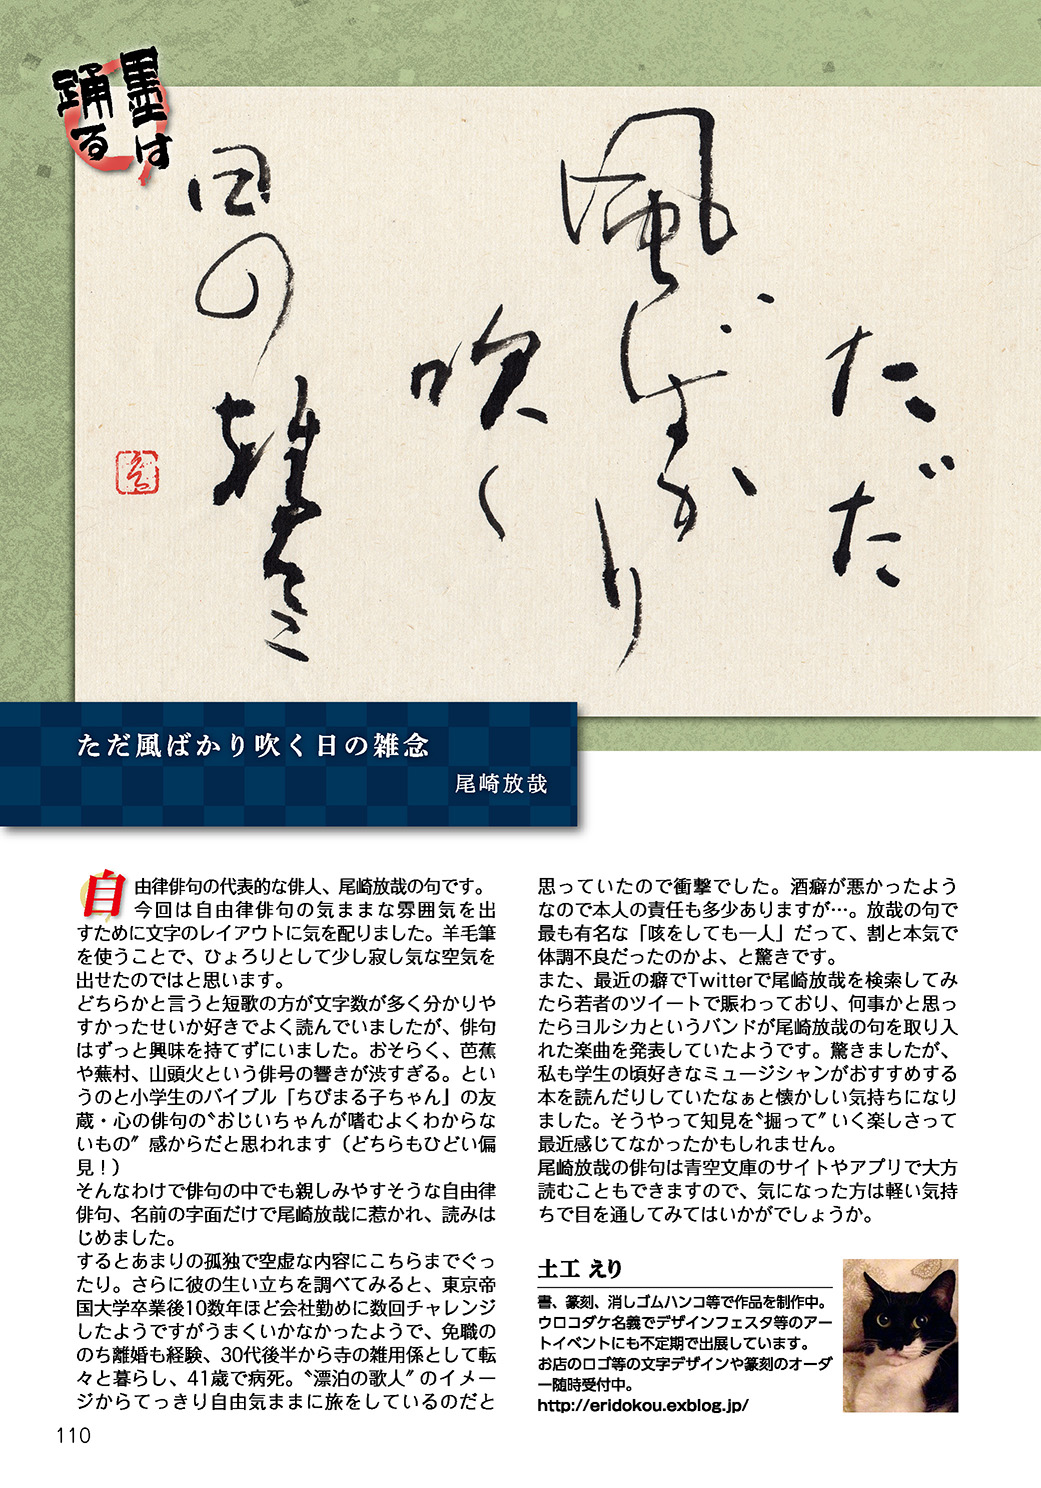 墨は
踊る
ただ
風ばかり
吹く
日の雑念
ただ風ばかり吹く日の雑念
尾崎放哉
自由律俳句の代表的な俳人、尾崎放哉の句です。
今回は自由律俳句の気ままな雰囲気を出
すために文字のレイアウトに気を配りました。羊毛筆
を使うことで、ひょろりとして少し寂し気な空気を
出せたのではと思います。
どちらかと言うと短歌の方が文字数が多く分かりや
すかったせいか好きでよく読んでいましたが、俳句
はずっと興味を持てずにいました。おそらく、芭蕉
や蕪村、山頭火という俳号の響きが渋すぎる。とい
うのと小学生のバイブル「ちびまる子ちゃん」の友
蔵・心の俳句の〝おじいちゃんが嗜むよくわからな
いもの〞感からだと思われます（どちらもひどい偏
見！）
そんなわけで俳句の中でも親しみやすそうな自由律
俳句、名前の字面だけで尾崎放哉に惹かれ、読みは
じめました。
するとあまりの孤独で空虚な内容にこちらまでぐっ
たり。さらに彼の生い立ちを調べてみると、東京帝
国大学卒業後10数年ほど会社勤めに数回チャレンジ
したようですがうまくいかなかったようで、免職の
のち離婚も経験、30代後半から寺の雑用係として転
々と暮らし、41歳で病死。〝漂泊の歌人〞のイメー
ジからてっきり自由気ままに旅をしているのだと
思っていたので衝撃でした。酒癖が悪かったよう
なので本人の責任も多少ありますが…。放哉の句で
最も有名な「咳をしても一人」だって、割と本気で
体調不良だったのかよ、と驚きです。
また、最近の癖でTwitterで尾崎放哉を検索してみ
たら若者のツイートで賑わっており、何事かと思っ
たらヨルシカというバンドが尾崎放哉の句を取り入
れた楽曲を発表していたようです。驚きましたが、
私も学生の頃好きなミュージシャンがおすすめする
本を読んだりしていたなぁと懐かしい気持ちになり
ました。そうやって知見を〝掘って〞いく楽しさって
最近感じてなかったかもしれません。
尾崎放哉の俳句は青空文庫のサイトやアプリで大方
読むこともできますので、気になった方は軽い気持
ちで目を通してみてはいかがでしょうか。
土工 えり
書、篆刻、消しゴムハンコ等で作品を制作中。
ウロコダケ名義でデザインフェスタ等のアー
トイベントにも不定期で出展しています。
お店のロゴ等の文字デザインや篆刻のオーダ
ー随時受付中。
http://eridokou.exblog.jp/
110